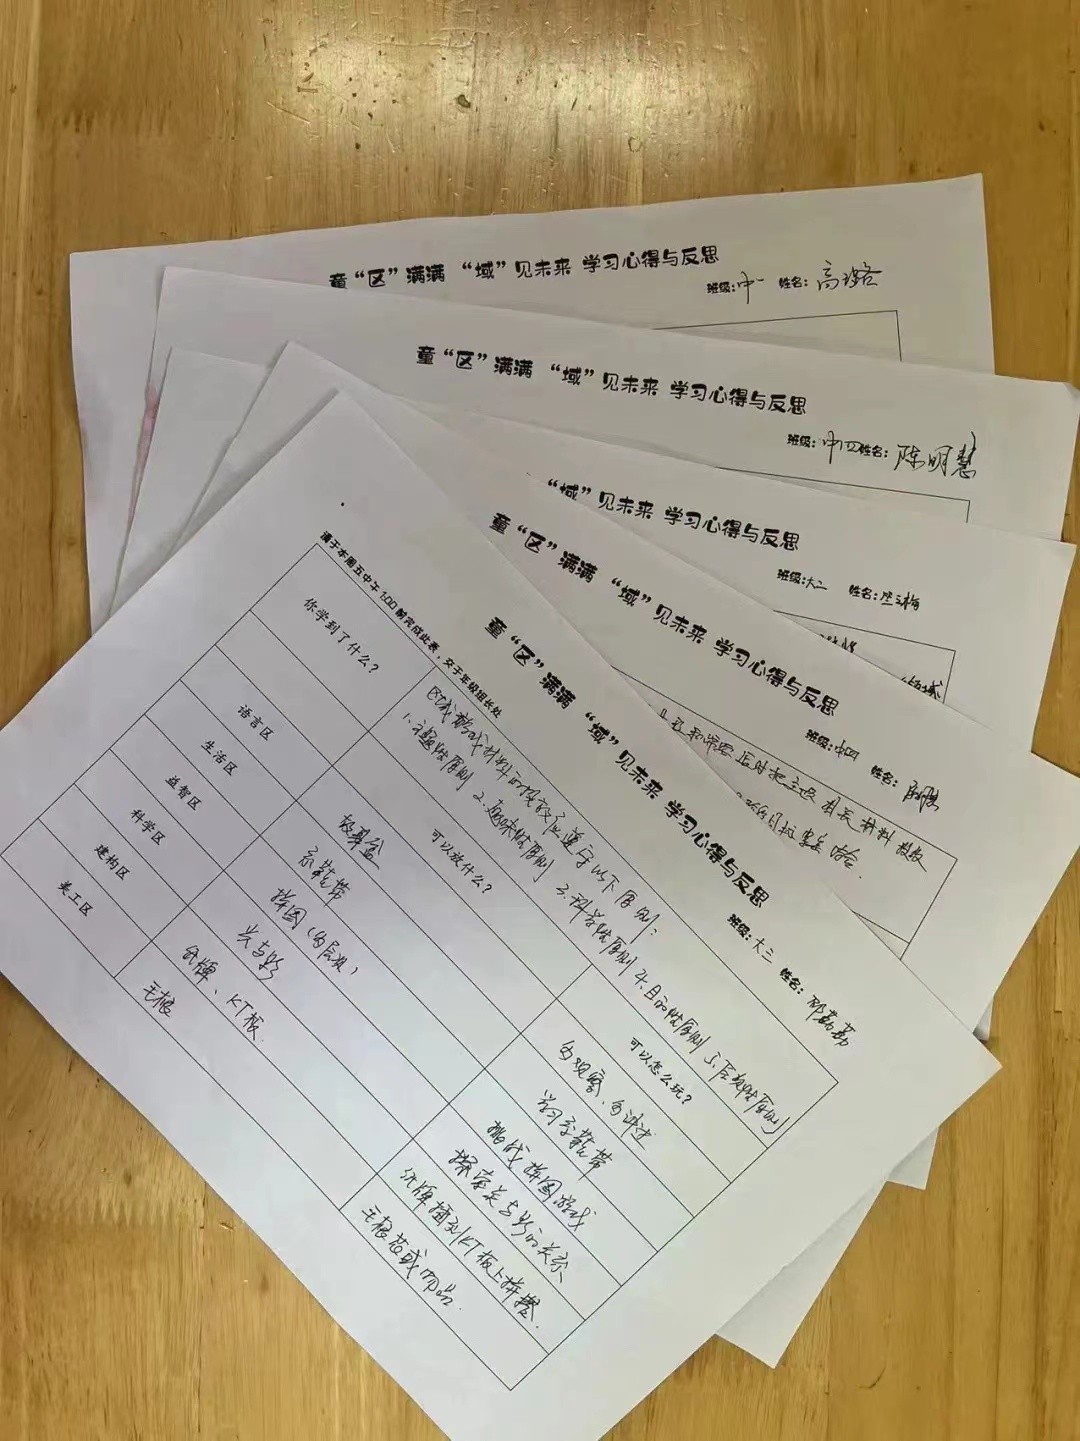 童“区”满满 “域”见未来 学习心得与反思
班级:中一 姓名:高
童“区”满满 “域”见未来 学习心得与反思
班级:中四 姓名:陈明慧
“域”见未来 学习心得与反思
班级:大二 姓名:
童“区”满满 “域”见未来 学习心得与反思
班级:中四 姓名:
及时把主题 材料 投放
目标
童“区”满满 “域”见未来 学习心得与反思
班级:大三 姓名:邝荔荔
请于本周五中午1:00前完成此表,交于年级组长处
你学到了什么?
区域游戏材料的投放应遵守以下原则:
1.主题性原则 2.趣味性原则 3.科学性原则 4.目的性原则 5.层次性原则
可以放什么? 可以怎么玩?
语言区 故事盒 自观察、自讲述
生活区 系鞋带 学习系鞋带
益智区 拼图(分层次) 挑战拼图游戏
科学区 光与影 探索光与影的关系
建构区 纸牌、KT板 纸牌插到KT板上拼搭.
美工区 毛根